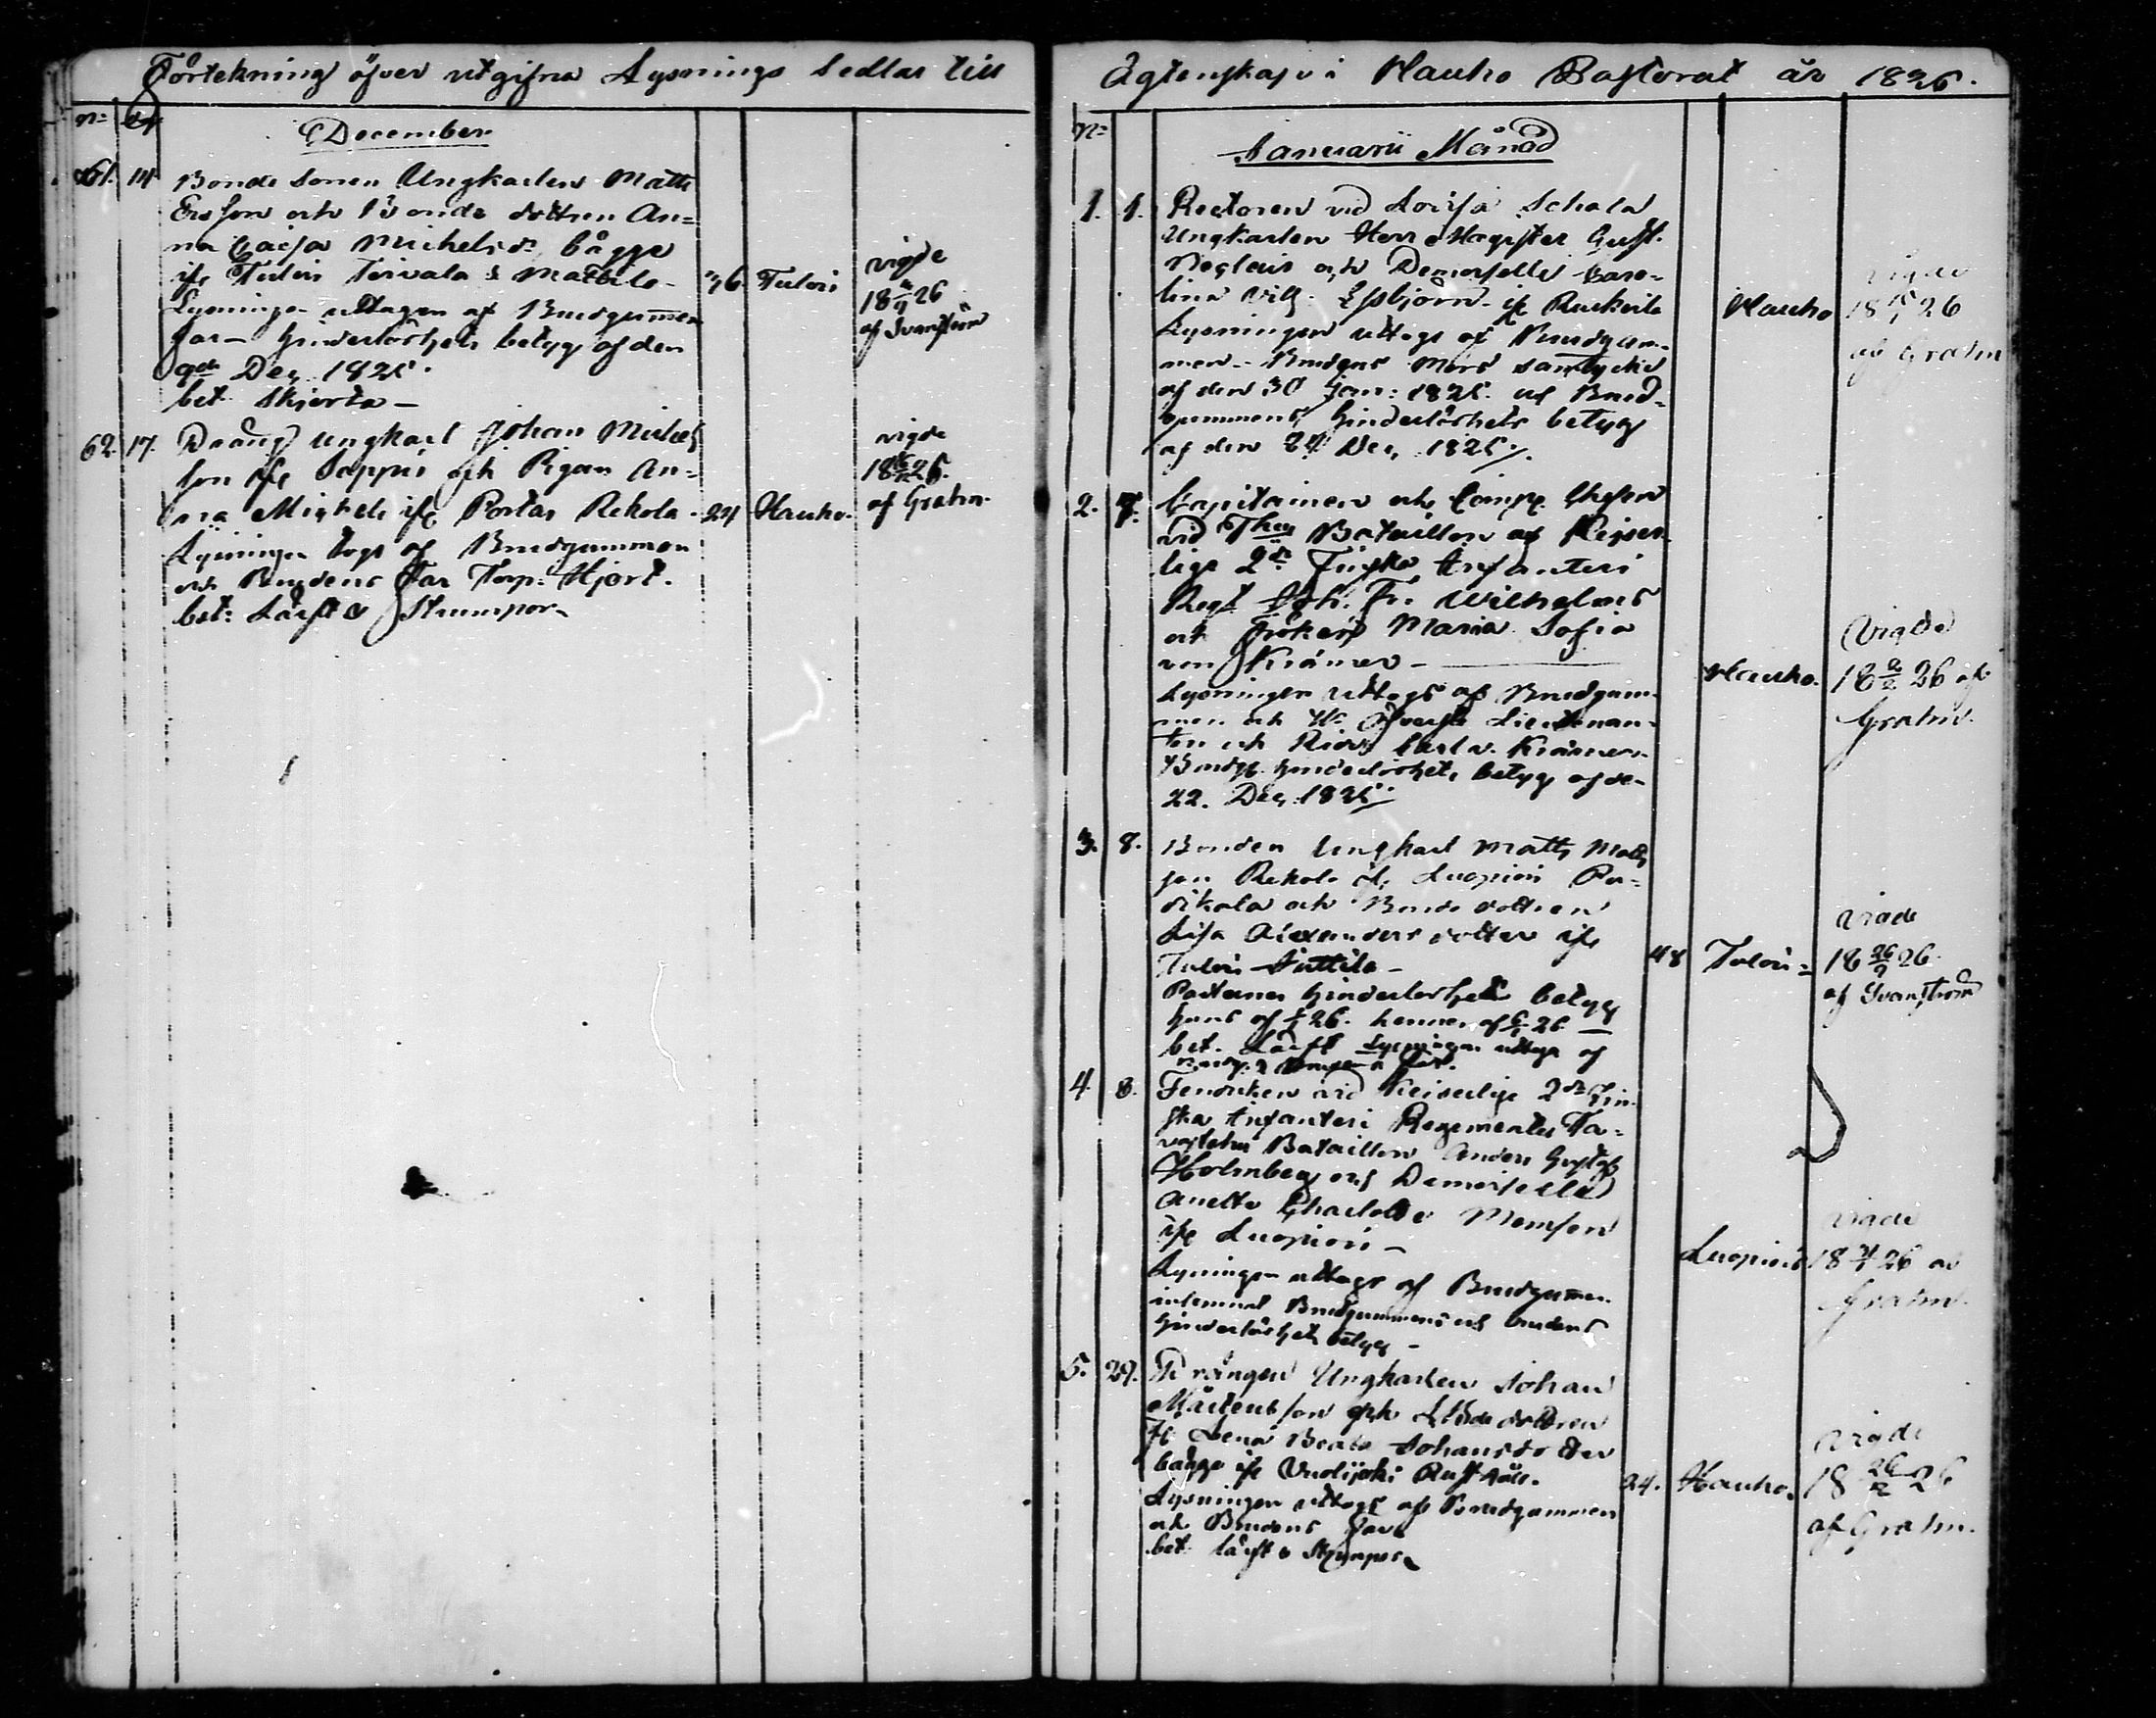 Förtekning öfver utgifna Lysnings Sedlar till
No
December
61. 14 Bonde Sonen Ungkarlen Matts
Ersson och Bonde dottren An=
na Caisa Michelsdr bägge
ifr Tulois Toivala & Mattila
Lysningen uttagen af Brudgummen
far Hinderlöshets betyg af den
9de Dec 1825.
bet Skjorta —
36 Tulois
vigde
18 26
af Svanström
62. 17. Dräng Ungkarl Johan Michels
son ifr Sappis och Pigan An=
na Michels ifr Portas Rekola
Lysningen togs af Brudgummen
och Brudens Far Torp. Hjort.
bet: Lärft & Strumpor
24 Hauho.
vigde
18 26.
af Grahn.
Ägtenskap i Hauho Pastorat år 1826.
No
Januarii Månad
1. 1. Rectoren vid Lovisa Schola
Ungkarlen Herr Magister Gust.
och Demoiselle Caro-
lina Vilh. Essbjörn ifr
Lysningen uttogs af Brudgum-
men - Brudens Mors samtycke
af den 30 Jan: 1825. och Brud-
gummens Hinderlöshets betyg
af den 24 Dec 1825.
Hauho
vigde
18 26
af Grahn
2. 7. Capitainen och Comp. Chefen
vid Bataillon af Kejser-
liga 2dra Finska Infanteri
Regt Joh. Fr. Wilhelms
och Fröken Maria Sofia
von Kræmer —
Lysningen uttogs af Brudgum-
men och Hr Öfverste Lieutenan-
ten och Ridd. Carl v. Kræmer
Brudg. hinderlöshets betyg af de
22. Dec. 1825
Hauho.
Vigde
18 2/2 26 af
Grahn.
3. 8. Bonden Ungkarl Matts Matts
son Rekola ifr Luopiois Pu=
dikala och Bonde dottren
Lisa Alexanders dotter ifr
Tulois Suttila —
Parternes hinderlöshets betyg
hans af 26. hennes af 26 —
bet. Lärft Lysningen uttogs af
48 Tulois
vigde
18 26/2 26.
af Svanström
4. 8. Fendriken vid Keiserlige 2dra Fin-
ska Infanteri Regementes Ta=
vastehus Bataillon Anders Gustaf
Holmberg och Demoiselle
Anette Charlotte Monsen
ifr Luopiois —
Lysningen uttogs af Brudgummen
inlemnat Brudgummens och Brudens
hinderlöshets betyg —
Luopiois
vigde
18 26 af
Grahn.
5. 29. Drängen Ungkarlen Johan
Mårtensson och dottren
Lena Beata Johansdotter
bägge ifr Vuolijoki
Lysningen uttogs af Brudgummen
och Brudens far
bet: lärft & Strumpor
24. Hauho.
vigde
18 26/2 26
af Grahn.